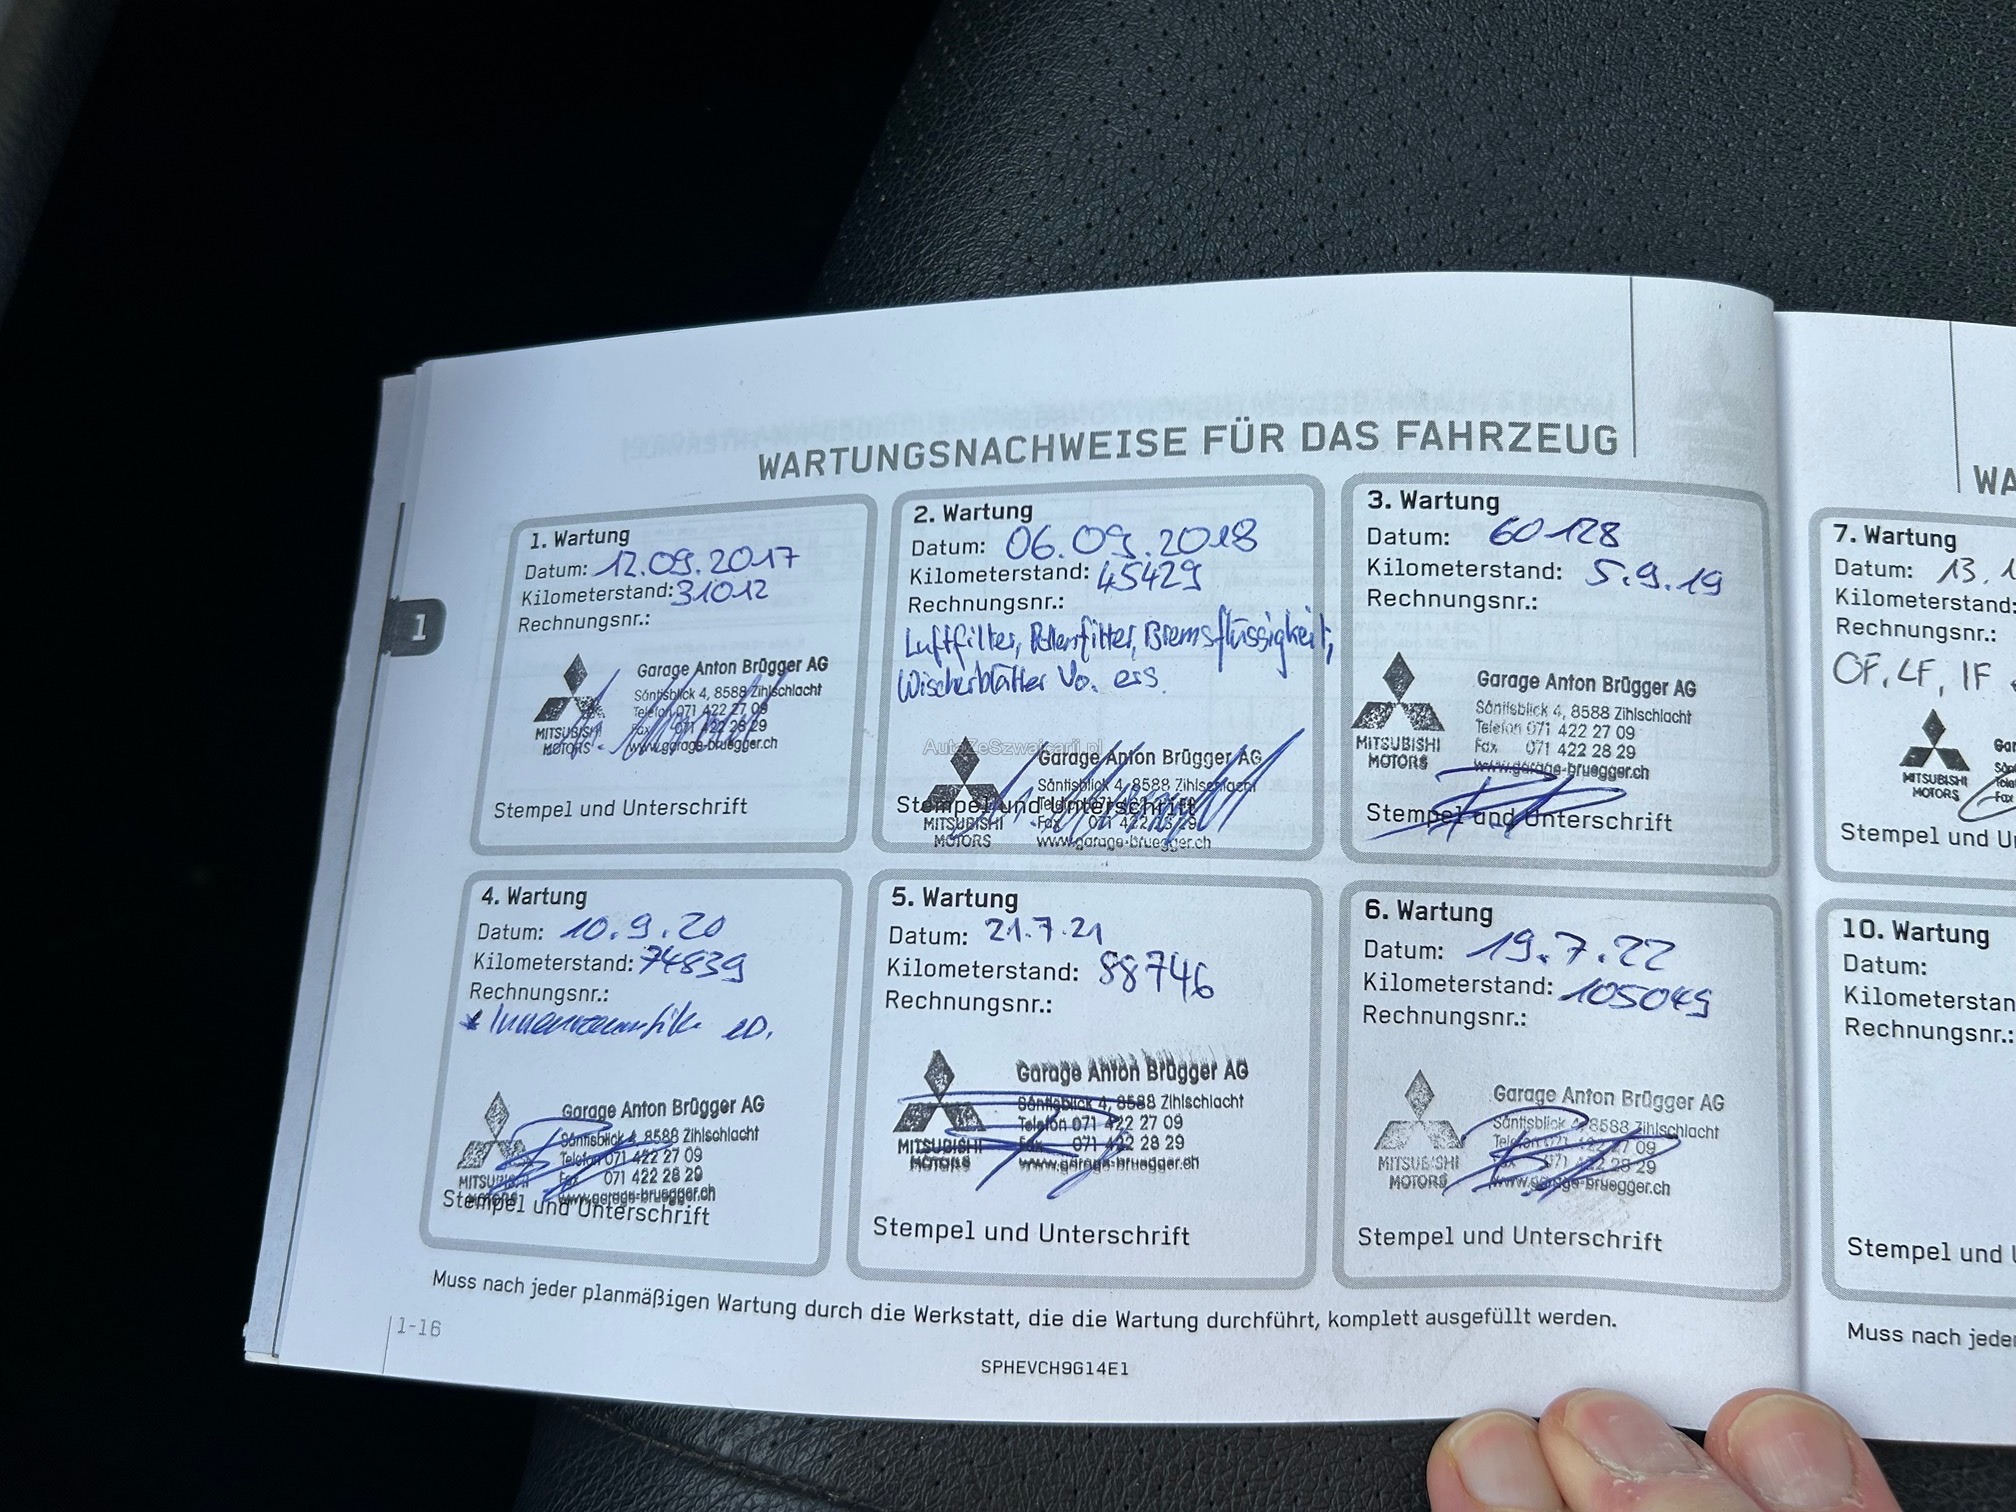 WARTUNGSNACHWEISE FÜR DAS FAHRZEUG
1
1. Wartung
Datum: 12.09.2017
Kilometerstand: 31012
Rechnungsnr.:
MITSUBISHI
MOTORS
Garage Anton Brügger AG
Säntisblick 4, 8588 Zihlschlacht
Telefon 071 422 27 09
Fax 071 422 28 29
www.garage-bruegger.ch
Stempel und Unterschrift
2. Wartung
Datum: 06.09.2018
Kilometerstand: 45429
Rechnungsnr.:
Luftfilter, Pollenfilter, Bremsflüssigkeit,
Wischerblätter Vo. ers.
AutaZeSzwajcarii.pl
MITSUBISHI
MOTORS
Garage Anton Brügger AG
Säntisblick 4, 8588 Zihlschlacht
Telefon 071 422 27 09
Fax 071 422 28 29
www.garage-bruegger.ch
Stempel und Unterschrift
3. Wartung
Datum: 60128
Kilometerstand: 5.9.19
Rechnungsnr.:
MITSUBISHI
MOTORS
Garage Anton Brügger AG
Säntisblick 4, 8588 Zihlschlacht
Telefon 071 422 27 09
Fax 071 422 28 29
www.garage-bruegger.ch
Stempel und Unterschrift
4. Wartung
Datum: 10.9.20
Kilometerstand: 74839
Rechnungsnr.:
MITSUBISHI
MOTORS
Garage Anton Brügger AG
Säntisblick 4, 8588 Zihlschlacht
Telefon 071 422 27 09
Fax 071 422 28 29
www.garage-bruegger.ch
Stempel und Unterschrift
5. Wartung
Datum: 21.7.21
Kilometerstand: 88746
Rechnungsnr.:
MITSUBISHI
MOTORS
Garage Anton Brügger AG
Säntisblick 4, 8588 Zihlschlacht
Telefon 071 422 27 09
Fax 071 422 28 29
www.garage-bruegger.ch
Stempel und Unterschrift
6. Wartung
Datum: 19.7.22
Kilometerstand: 105049
Rechnungsnr.:
MITSUBISHI
MOTORS
Garage Anton Brügger AG
Säntisblick 4, 8588 Zihlschlacht
Telefon 071 422 27 09
Fax 071 422 28 29
www.garage-bruegger.ch
Stempel und Unterschrift
Muss nach jeder planmäßigen Wartung durch die Werkstatt, die die Wartung durchführt, komplett ausgefüllt werden.
1-16
SPHEVCH9G14E1
WA
7. Wartung
Datum: 13.1
Kilometerstand:
Rechnungsnr.:
OF, LF, IF
MITSUBISHI
MOTORS
Gar
Sän
Tele
Fax
Stempel und U
10. Wartung
Datum:
Kilometerstan
Rechnungsnr.:
Stempel und
Muss nach jede